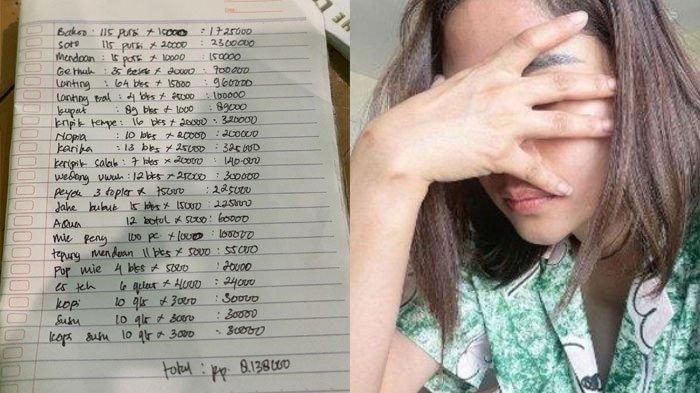 Date:
Bakso : 115 porsi x 15000 : 1725000
Soto 115 porsi x 20000 : 2300000
Mendoan : 15 porsi x 10000 : 150000
Gethuk : 35 x 20000 : 700000
lanting : 64 bks x 15000 : 960000
lanting 4 bks x 25000 : 100000
kupat : 89 bks x 1000 : 89000
kripik tempe : 16 bks x 20000 : 320000
Nopia : 10 bks x 20000 : 200000
karika : 13 bks x 25000 : 325000
keripik salak : 7 bks x 20000 : 140.000
wedang uwuh : 12 bks x 25000 : 300000
peyek 3 toples x 75000 : 225000
Jahe bubuk 15 bks x 15000 : 225000
Aqua 12 botol x 5000 : 60000
mie 100 pc x 1000 : 100000
tepung mendoan 11 bks x 5000 : 55000
Pop mie 4 bks x 5000 : 20000
es teh 6 gelas x 4000 : 24000
kopi 10 gls x 3000 : 30000
susu 10 gls x 3000 : 30000
kopi susu 10 gls x 3000 : 30000
total : Rp. 8.138000